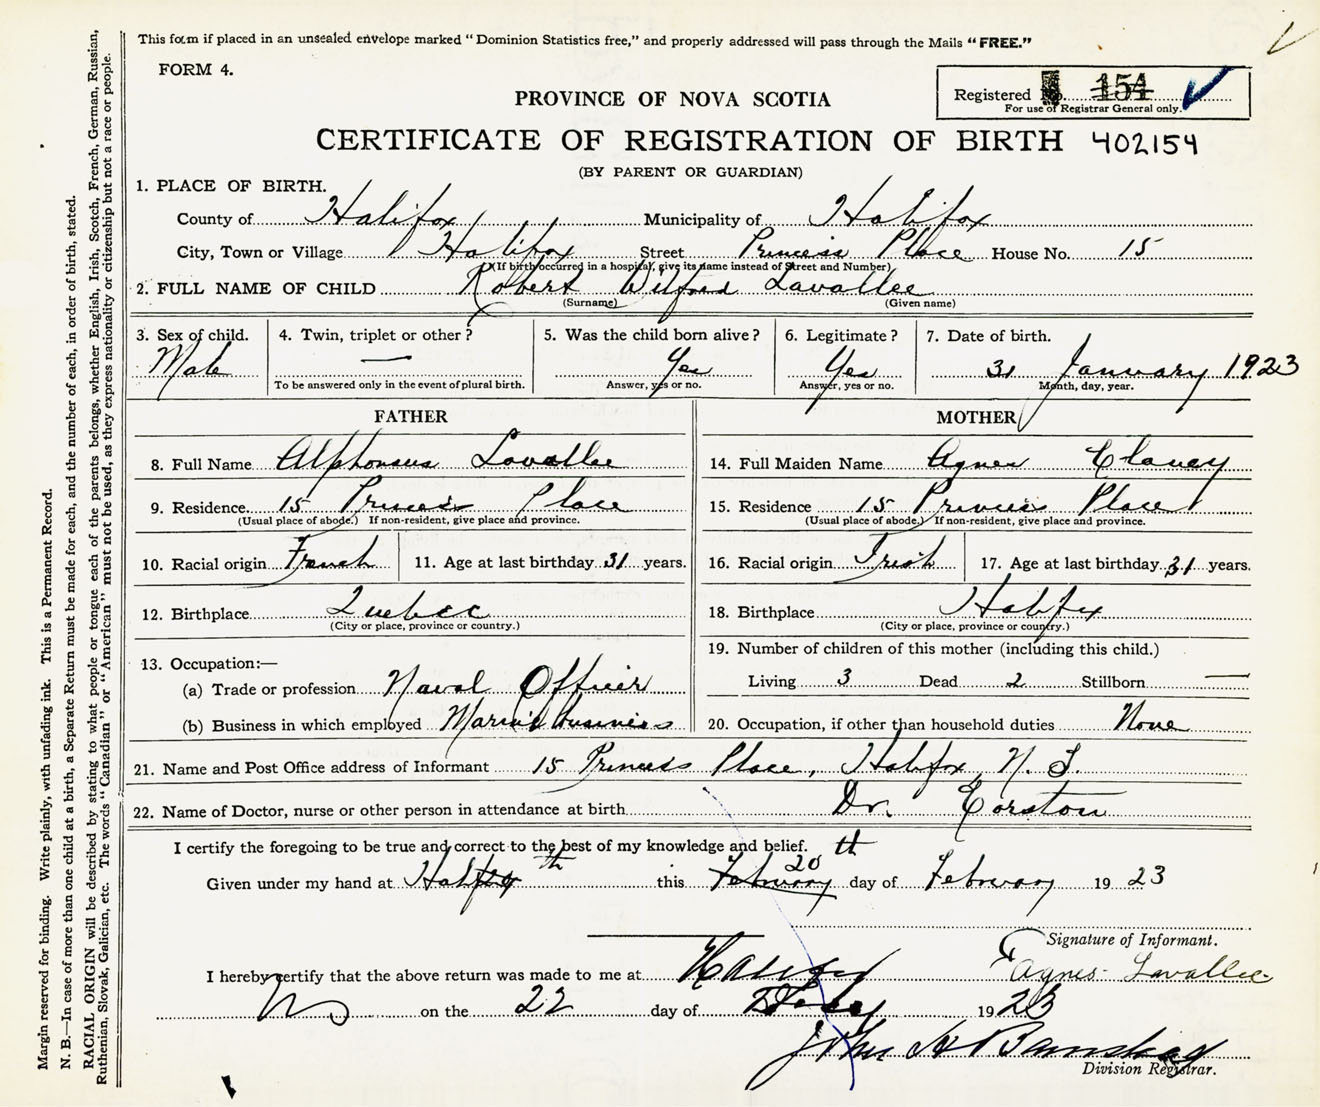 This form if placed in an unsealed envelope marked "Dominion Statistics free," and properly addressed will pass through the Mails "FREE."
FORM 4.
Registered No. 154
For use of Registrar General only.
PROVINCE OF NOVA SCOTIA
CERTIFICATE OF REGISTRATION OF BIRTH 402154
(BY PARENT OR GUARDIAN)
1. PLACE OF BIRTH.
County of Halifax Municipality of Halifax
City, Town or Village Halifax Street Princess Place House No. 15
(If birth occurred in a hospital, give its name instead of Street and Number)
2. FULL NAME OF CHILD Robert Wilfred Lavallee
(Surname) (Given name)
3. Sex of child. 4. Twin, triplet or other? 5. Was the child born alive? 6. Legitimate? 7. Date of birth.
Male — Yes Yes 31 January 1923
To be answered only in the event of plural birth. Answer, yes or no. Answer, yes or no. Month, day, year.
FATHER
8. Full Name Alphonsus Lavallee
9. Residence 15 Princess Place
(Usual place of abode.) If non-resident, give place and province.
10. Racial origin French 11. Age at last birthday 31 years.
12. Birthplace Quebec
(City or place, province or country.)
13. Occupation:—
(a) Trade or profession Naval Officer
(b) Business in which employed Marine business
MOTHER
14. Full Maiden Name Agnes Clancy
15. Residence 15 Princess Place
(Usual place of abode.) If non-resident, give place and province.
16. Racial origin Irish 17. Age at last birthday 31 years.
18. Birthplace Halifax
(City or place, province or country.)
19. Number of children of this mother (including this child.)
Living 3 Dead 2 Stillborn —
20. Occupation, if other than household duties None
21. Name and Post Office address of Informant 15 Princess Place, Halifax N. S.
22. Name of Doctor, nurse or other person in attendance at birth Dr. Corston
I certify the foregoing to be true and correct to the best of my knowledge and belief.
Given under my hand at Halifax this 20th day of February 1923
Signature of Informant.
Agnes Lavallee
I hereby certify that the above return was made to me at Halifax
NS on the 22 day of Feby 1923
John H
Division Registrar.
Margin reserved for binding. Write plainly, with unfading ink. This is a Permanent Record.
N. B.—In case of more than one child at a birth, a Separate Return must be made for each, and the number of each, in order of birth, stated.
RACIAL ORIGIN will be described by stating to what people or tongue each of the parents belongs, whether English, Irish, Scotch, French, German, Russian,
Ruthenian, Slovak, Galician, etc. The words "Canadian" or "American" must not be used, as they express nationality or citizenship but not a race or people.